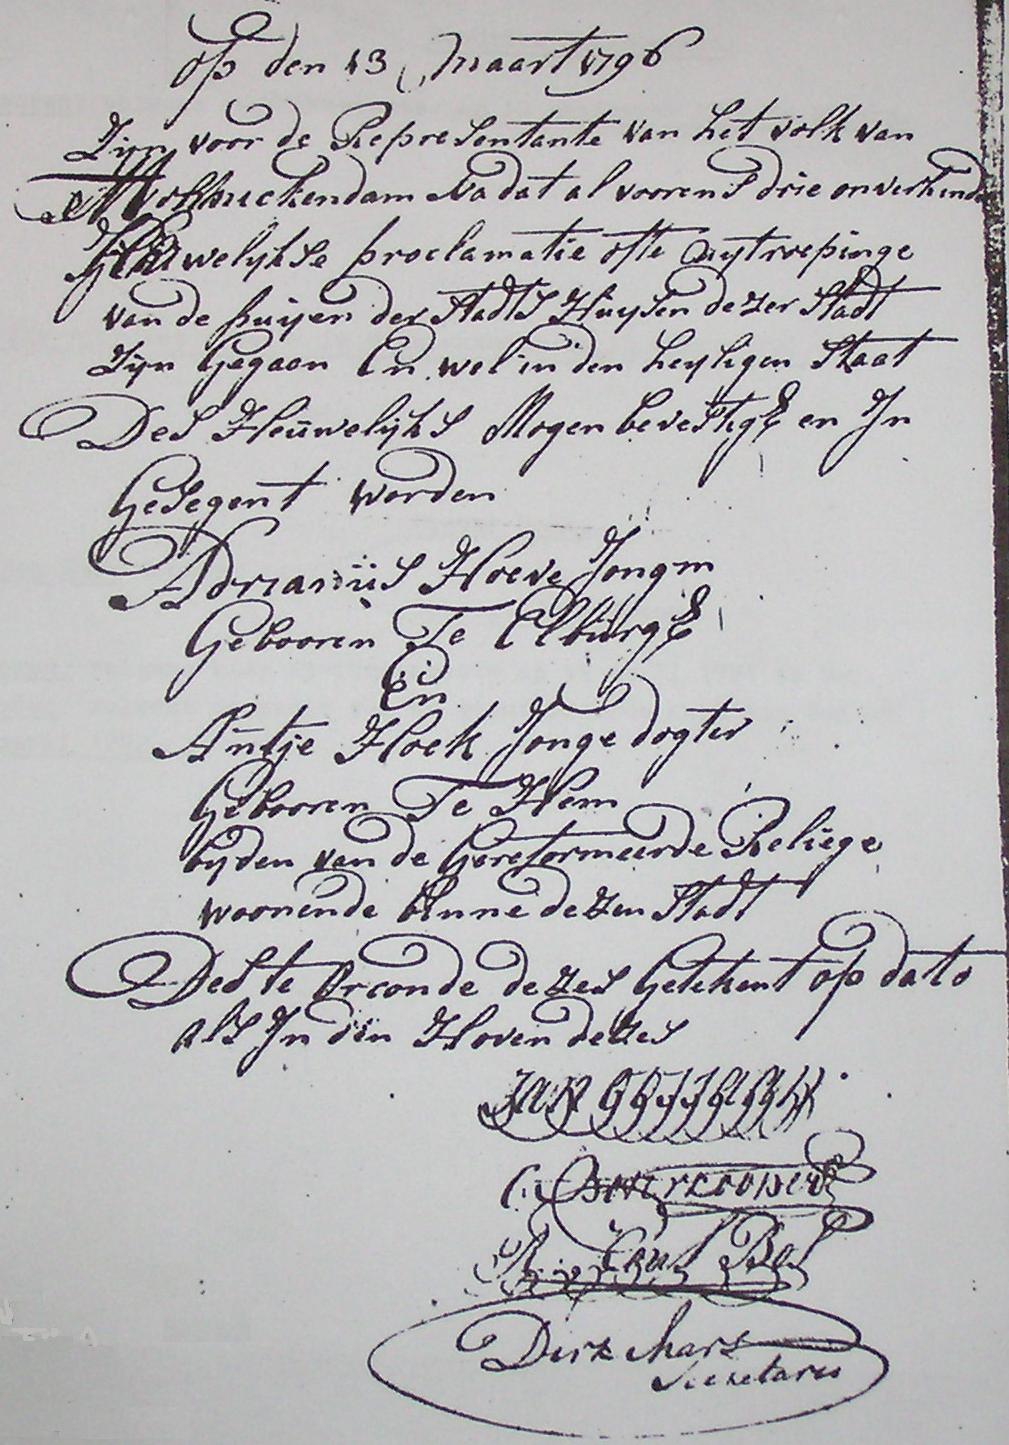 op den 13 Maart 1796
Zijn voor de Representante van het volk van
Monnickendam Na dat al voorens drie onverhinde
Heuwelijkse proclamatie ofte Uijtroepinge
van de puijen der Stadts Huijsen dezer Stadt
Zijn Gegaan En wel in den heyligen Staat
Des Heuwelijks Mogen bevestigt en In
Gesegent worden
Adrianus Hoeve Jongm
Gebooren Te Elburg
En
Antje Hoek Jonge dogter
Gebooren Te Hem
byden van de Gereformeerde Relige
woonende binne dezen Stadt
Des te Orconde dezes Getekent op dato
als In den Hoven dezes
JAN
C
Bas
Dirk Mars
Secretaris